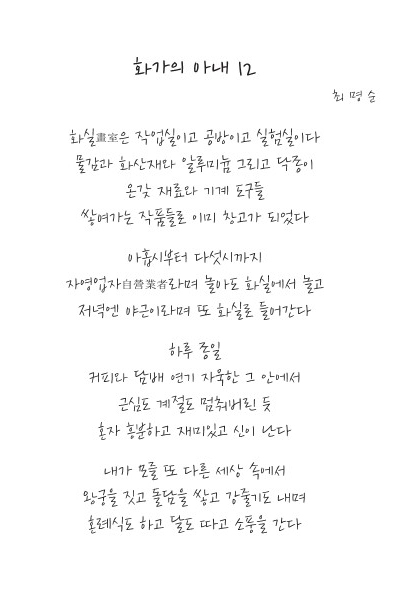 화가의 아내 12
최 명 순
화실畫室은 작업실이고 공방이고 실험실이다
물감과 화산재와 알루미늄 그리고 닥종이
온갖 재료와 기계 도구들
쌓여가는 작품들로 이미 창고가 되었다
아홉시부터 다섯시까지
자영업자自營業者라며 놀아도 화실에서 놀고
저녁엔 야근이라며 또 화실로 들어간다
하루 종일
커피와 담배 연기 자욱한 그 안에서
근심도 계절도 멈춰버린 듯
혼자 흥분하고 재미있고 신이 난다
내가 모를 또 다른 세상 속에서
왕궁을 짓고 돌담을 쌓고 강줄기도 내며
혼례식도 하고 달도 따고 소풍을 간다